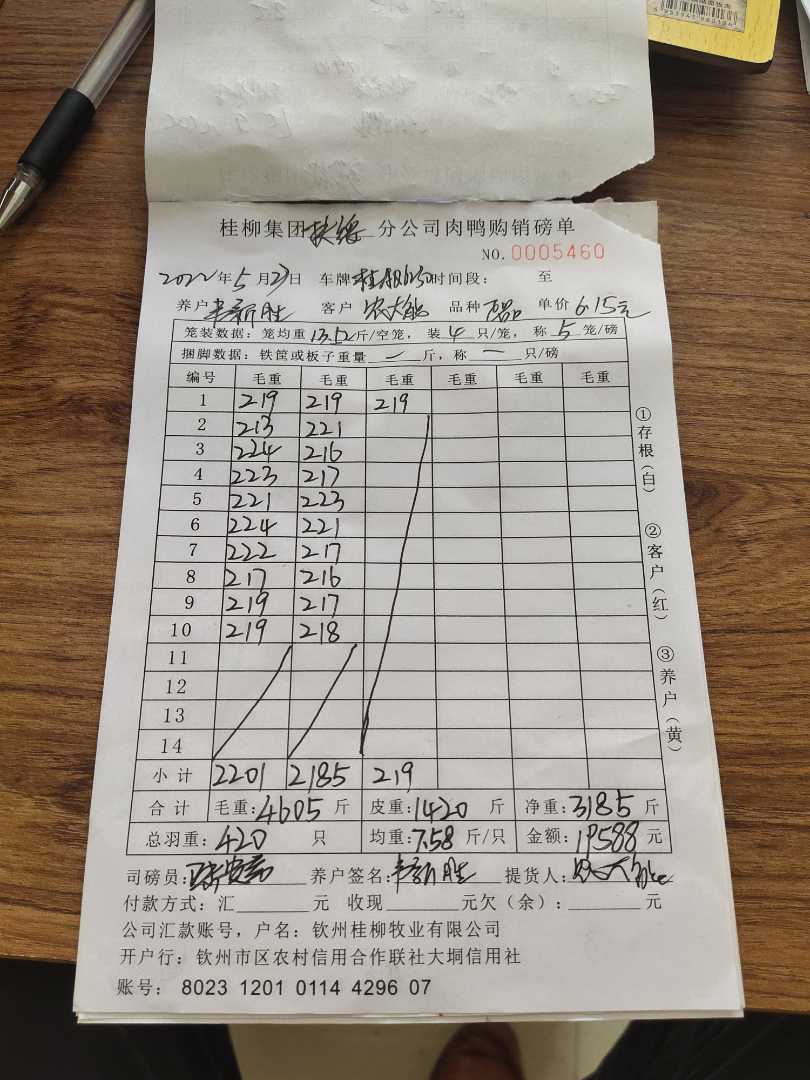 桂柳集团扶绥分公司肉鸭购销磅单
NO.0005460
2022年5月27日 车牌 时间段： 至
养户 韦新胜 客户 农大能 品种 单价 6.15元
笼装数据：笼均重13.52斤/空笼，装4只/笼，称5笼/磅
捆脚数据：铁筐或板子重量 — 斤，称 — 只/磅
编号 毛重 毛重 毛重 毛重 毛重 毛重
1 219 219 219
2 213 221
3 224 216
4 223 217
5 221 223
6 224 221
7 222 217
8 217 216
9 219 217
10 219 218
11
12
13
14
小计 2201 2185 219
合计 毛重：4605斤 皮重：1420斤 净重：3185斤
总羽重：420只 均重：7.58斤/只 金额：19588元
司磅员： 养户签名：韦新胜 提货人：农大能
付款方式：汇 元 收现 元欠（余）： 元
公司汇款账号，户名：钦州桂柳牧业有限公司
开户行：钦州市区农村信用合作联社大垌信用社
账号： 8023 1201 0114 4296 07
①存根（白）
②客户（红）
③养户（黄）